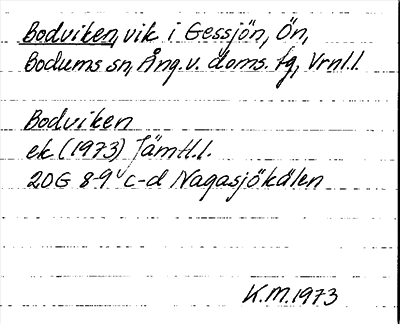 Bodviken, vik i Gessjön, Ön,
Bodums sn, Ång.v. doms. tg, Vrnl.l.
Bodviken
ek (1973) Jämtl.l.
20G 8-9 c-d Nagasjökölen
K.M. 1973